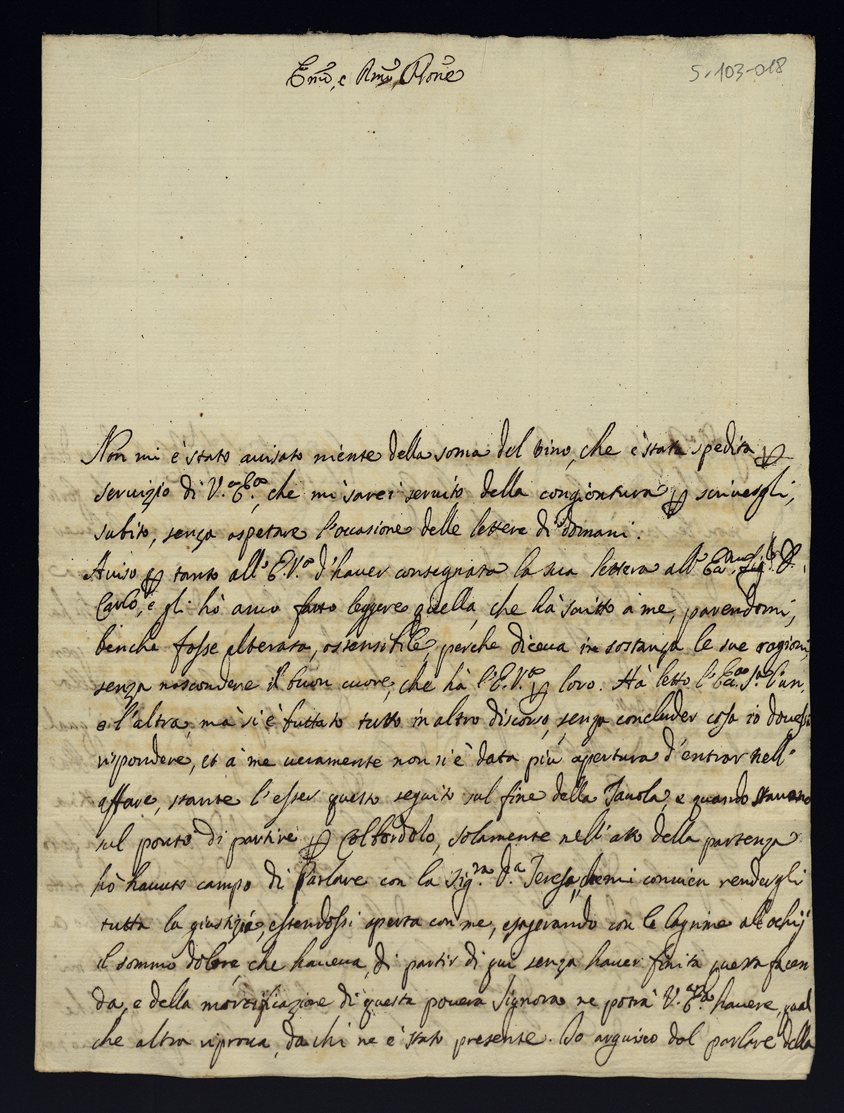 Em̃o, e Rm̃o Prone
S-103-018
Non mi è stato auisato niente della soma del vino, che è stata spedita p
seruizio di V.a E.a, che mi sarei seruito della congiontura p scriuergli,
subito, senza aspetare l'occasione delle lettere di domani.
Auiso p tanto all'E.V.a d'hauer consegnata la sua lettera all' D.
Carlo, e gli hò anco fatto leggere quella, che hà scritto à me, parendomi,
benche fosse alterata, ostensibile, perche diceua in sostanza le sue ragioni,
senza nascondere il buon cuore, che hà l'E.V.a p loro. Hà letto l' l'un,
e l'altra, mà si è buttato tutto in altro discorso, senza concluder cosa io douessi
rispondere, et à me ueramente non si è data più apertura d'entrar nell'
affare, stante l'esser questo seguito sul fine della Tauola, e quando stauano
sul ponto di partire p Colbordolo, solamente nell'atto della partenza
hò hauuto campo di parlare con la Sig.ra D.a Teresa, che mi conuien rendergli
tutta la giustizia, essendossi aperta con me, esagerando con le lagrime all'ochij
il sommo dolore, che haueua, di partir di qui senza hauer finita questa facen
da, e della mortificazione di questa pouera Signora ne potrà V.a E.za hauere, qual
che altra riproua, da chi ne è stato presente. Io arguisco dal parlare della